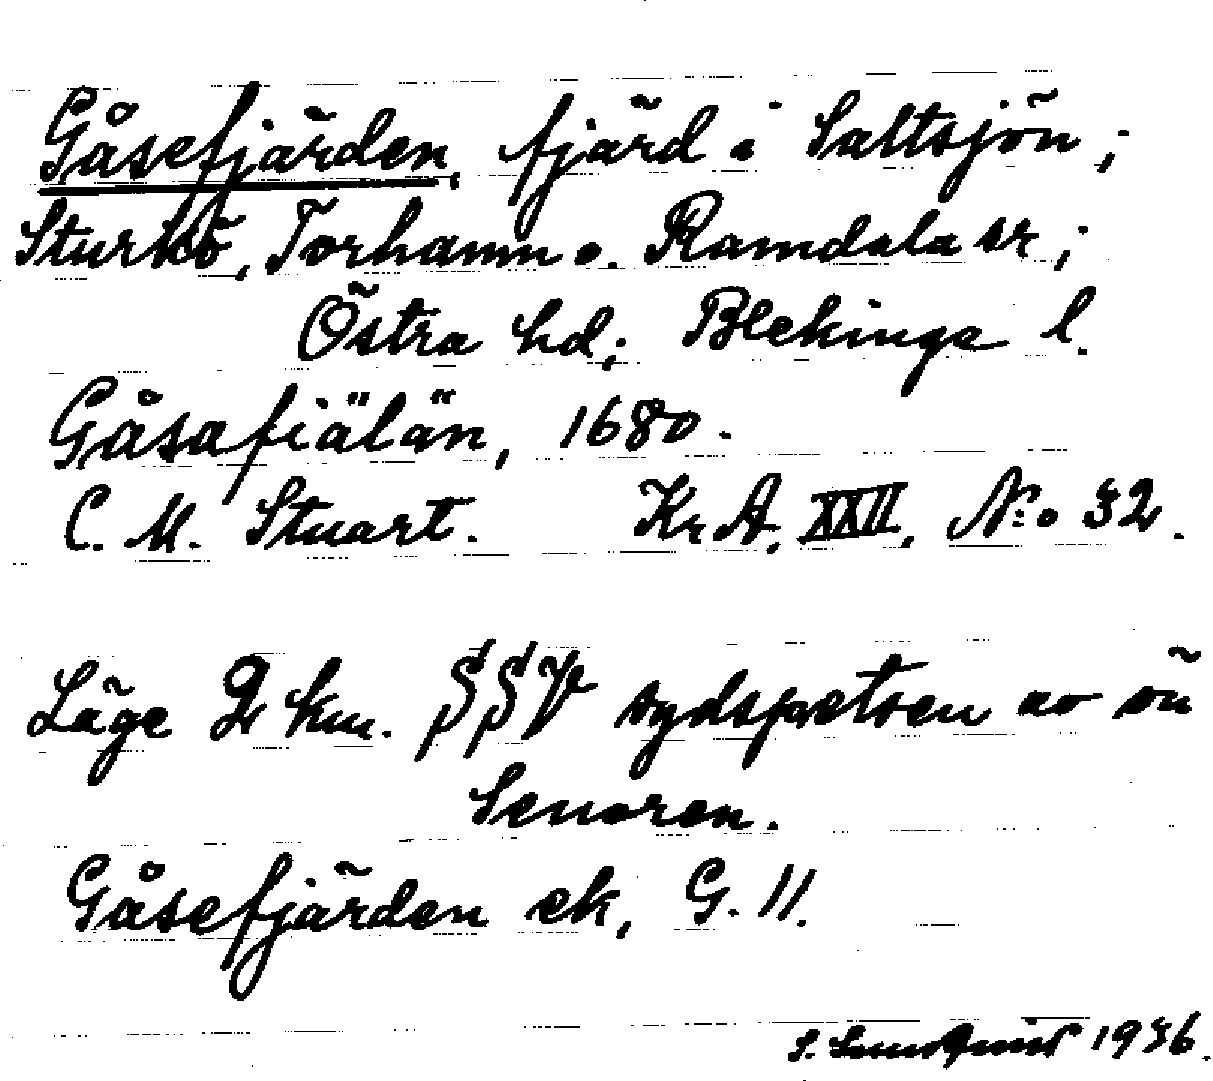 Gåsefjärden, fjärd i Saltsjön;
Sturkö, Torhamn o. Ramdala sr;
Östra hd; Blekinge l.
Gåsafiälän, 1680.
C. M. Stuart. Kr A. XXII, No 32.
Läge 2 km. SSV sydspetsen av ön
Senoren.
Gåsefjärden ek, G. 11.
S. 1936.